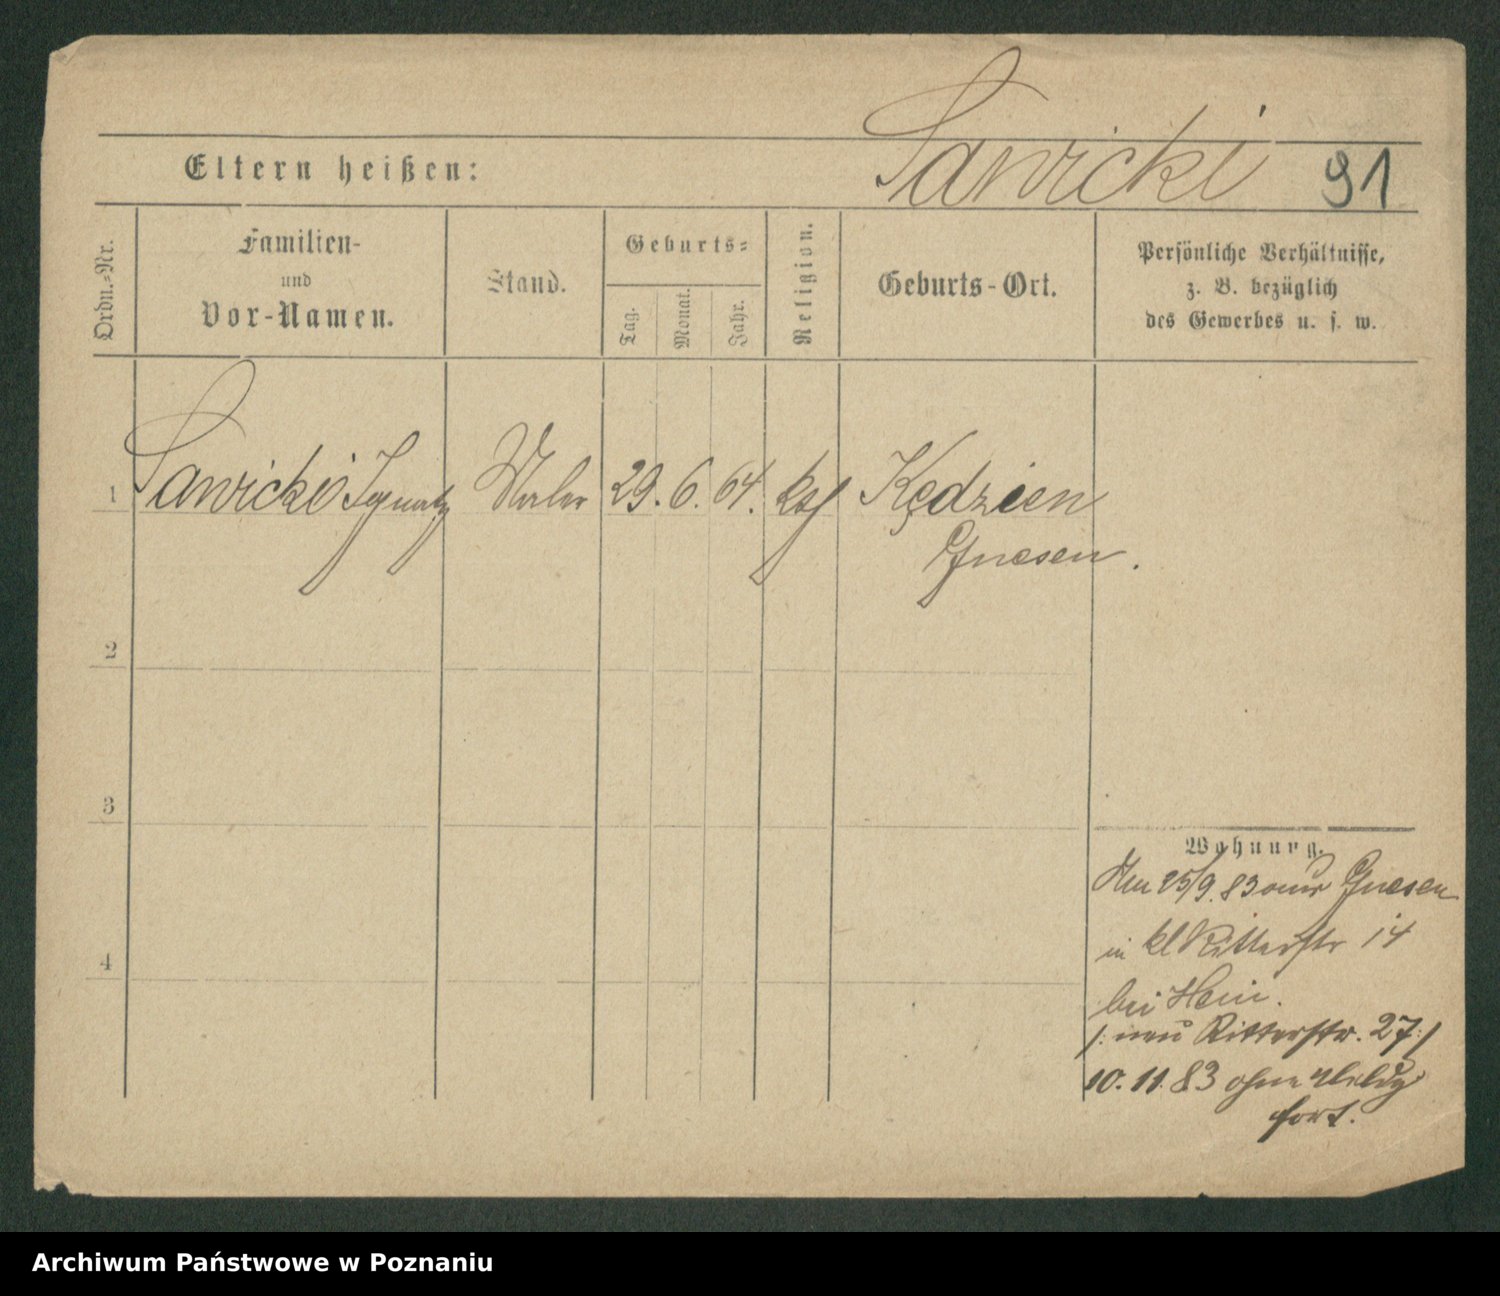 Sawicki
Eltern heißen: 91
Ordn.-Nr.
Familien-
und
Vor-Namen.
Stand.
Geburts-
Tag.
Monat.
Jahr.
Religion.
Geburts-Ort.
Persönliche Verhältnisse,
z. B. bezüglich
des Gewerbes u. s. w.
1 Sawicki Ignatz Maler 29. 6. 64. kth Kędzien
Gnesen.
2
3
4
Wohnung.
25/9. 83 aus Gnesen
in kl Ritterstr 14
bei Hein.
/: neu Ritterstr. 27 :/
10. 11. 83 ohne Meldg
fort.
Archiwum Państwowe w Poznaniu